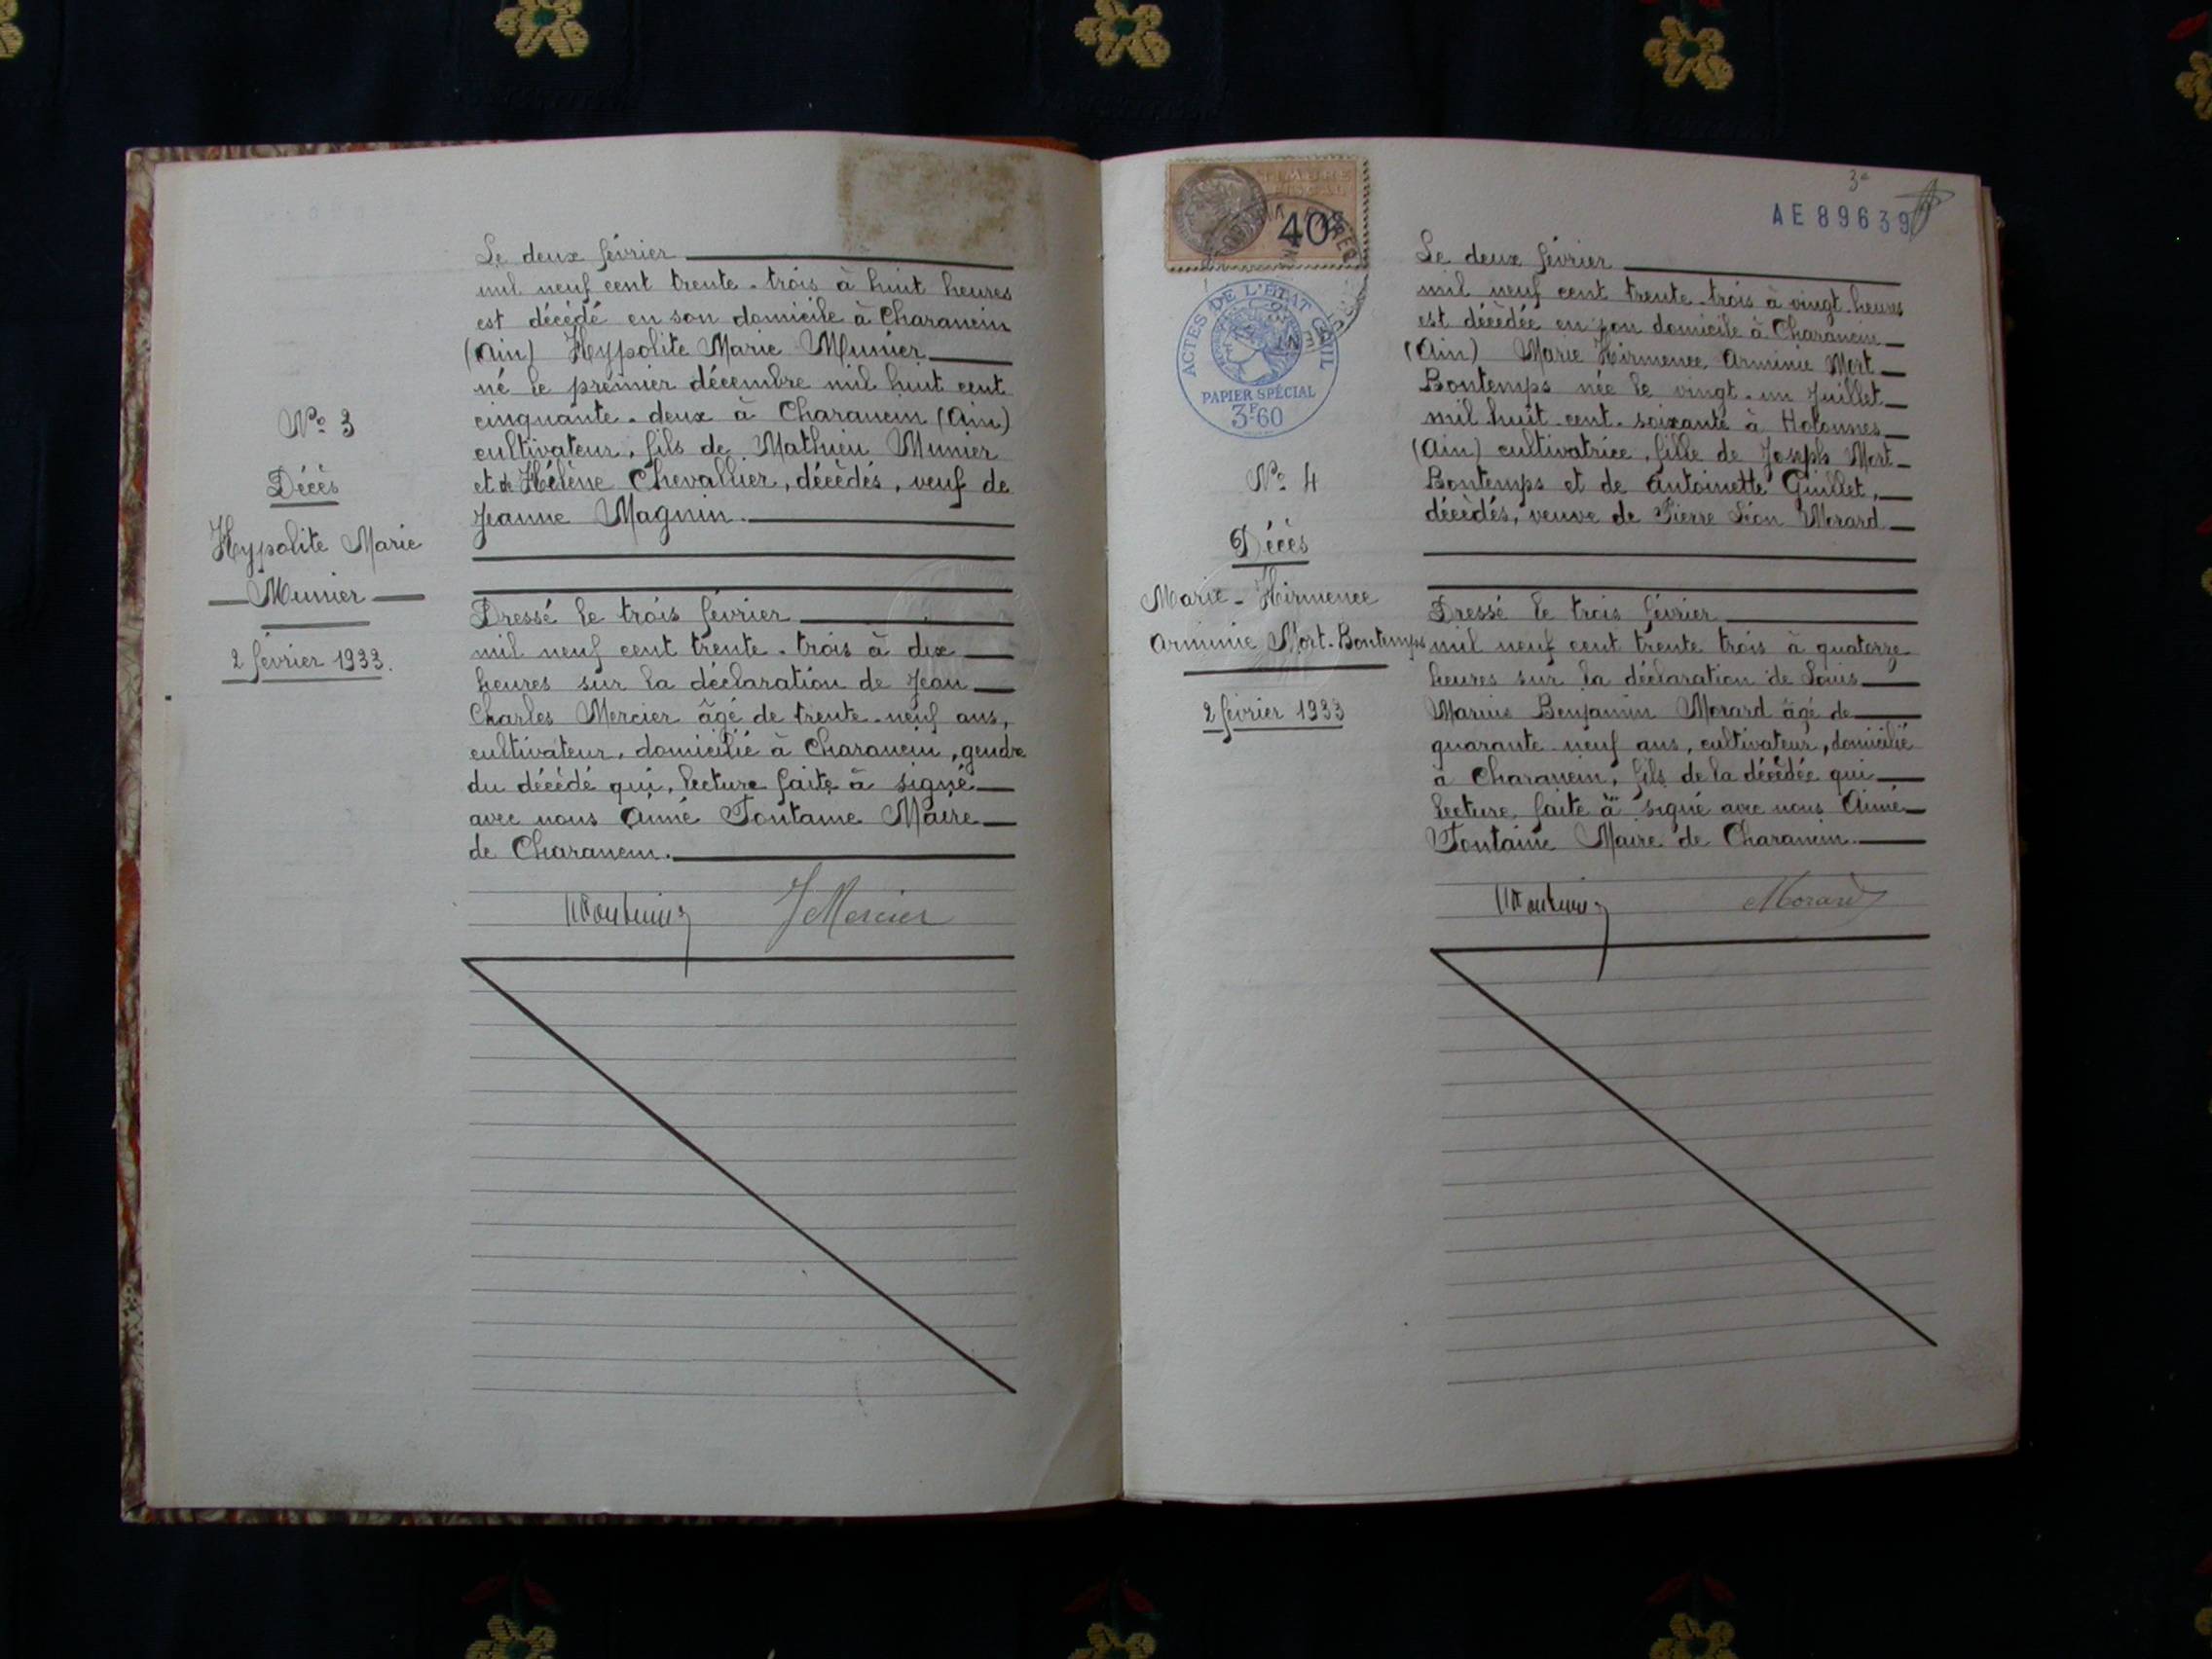 Le deux février
mil neuf cent trente-trois à huit heures
est décédé en son domicile à Charancin
(Ain) Hypolite Marie Munier
né le premier décembre mil huit cent
cinquante-deux à Charancin (Ain)
cultivateur, fils de Mathieu Munier
et de Hélène Chevallier, décédés, veuf de
Jeanne Magnin.
Nº 3
Décès
Hypolite Marie
Munier
2 février 1933.
Dressé le trois février
mil neuf cent trente-trois à dix
heures sur la déclaration de Jean
Charles Mercier âgé de trente-neuf ans,
cultivateur, domicilié à Charancin, gendre
du décédé qui, lecture faite à signé
avec nous Aimé Fontaine Maire
de Charancin.
J Mercier
TIMBRE
FISCAL
40c
3e
AE 89639
ACTES DE L'ÉTAT CIVIL
PAPIER SPÉCIAL
3F60
Le deux février
mil neuf cent trente-trois à vingt heures
est décédée en son domicile à Charancin
(Ain) Marie Hirmence Arminie Mort
Bontemps née le vingt-un Juillet
mil huit cent soixante à Hotonnes
(Ain) cultivatrice, fille de Joseph Mort-
Bontemps et de Antoinette Guillet,
décédés, veuve de Pierre Léon Morard
Nº 4
Décès
Marie-Hirmence
Arminie Mort-Bontemps
2 février 1933
Dressé le trois février
mil neuf cent trente trois à quatorze
heures sur la déclaration de Louis
Marius Benjamin Morard âgé de
quarante-neuf ans, cultivateur, domicilié
à Charancin, fils de la décédée qui
lecture faite à signé avec nous Aimé
Fontaine Maire de Charancin.
Morard